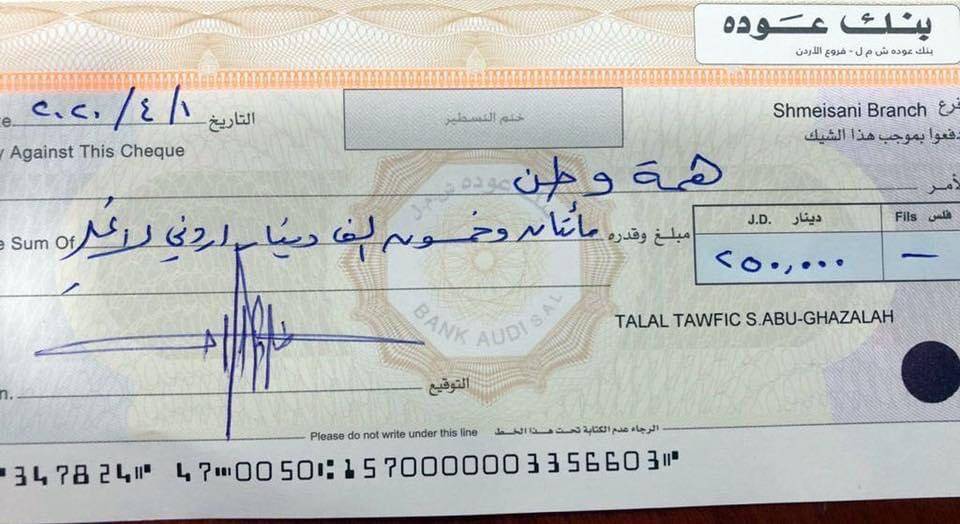 بنك عوده
بنك عوده ش م ل - فروع الأردن
التاريخ ٢٠٢٠/٤/١
ختم التسطير
Shmeisani Branch فرع
y Against This Cheque
دفعوا بموجب هذا الشيك
همة وطن
e Sum Of مبلغ وقدره مائتان وخمسون الف دينار اردني لا غير
J.D. دينار Fils فلس
٢٥٠,٠٠٠ —
BANK AUDI S.A.L
TALAL TAWFIC S.ABU-GHAZALAH
التوقيع
Please do not write under this line الرجاء عدم الكتابة تحت هذا الخط
347824 47 0050 1570000003356603